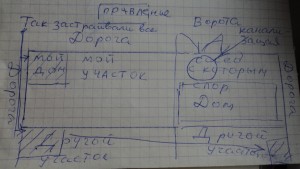 ПРАВЛЕНИЕ
Так застраивали все
Дорога
Ворота
канали
зация
Дорога
МОЙ
ДОМ
МОЙ
УЧАСТОК
сосед
с которым
спор
Дом
Дорога
Другой
участок
Другой
участок